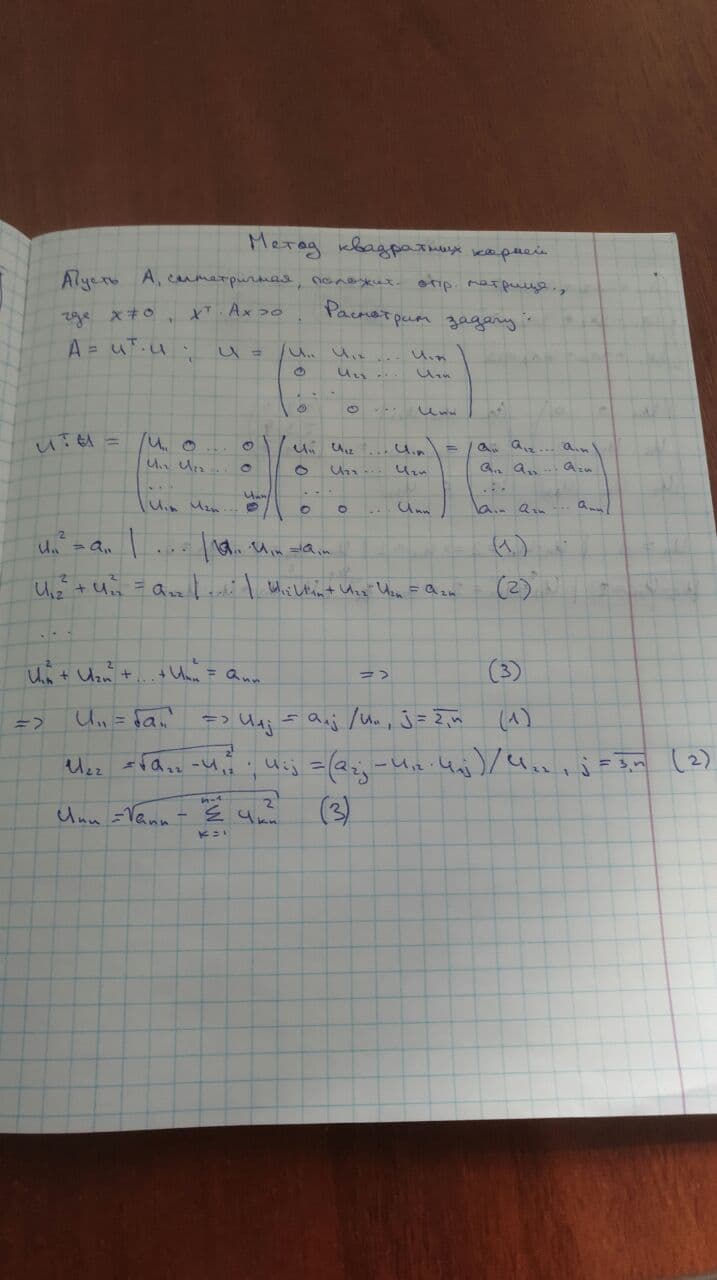 Метод квадратных корней
Пусть A, симметричная, положит. опр. матрица.,
где x≠0, xᵀ·Ax>0. Расмотрим задачу:
A = uᵀ·u ; u = (u₁₁ u₁₂ ... u₁ₙ
0 u₂₂ ... u₂ₙ
...
0 0 ... uₙₙ)
uᵀ·u = (u₁₁ 0 ... 0 (u₁₁ u₁₂ ... u₁ₙ = (a₁₁ a₁₂ ... a₁ₙ
u₁₂ u₂₂ ... 0 0 u₂₂ ... u₂ₙ a₁₂ a₂₂ ... a₂ₙ
... ... ...
u₁ₙ u₂ₙ ... uₙₙ) 0 0 ... uₙₙ) a₁ₙ a₂ₙ ... aₙₙ)
u₁₁² = a₁₁ | ... | u₁₁·u₁ₙ = a₁ₙ (1)
u₁₂² + u₂₂² = a₂₂ | ... | u₁₂u₁ₙ + u₂₂·u₂ₙ = a₂ₙ (2)
...
u₁ₙ² + u₂ₙ² + ... + uₙₙ² = aₙₙ => (3)
=> u₁₁ = √a₁₁ => u₁ⱼ = a₁ⱼ/u₁₁, j = 2,n (1)
u₂₂ = √a₂₂ - u₁₂² ; u₂ⱼ = (a₂ⱼ - u₁₂·u₁ⱼ)/u₂₂, j = 3,n (2)
uₙₙ = √aₙₙ - Σ uₖₙ² (3)
n-1
k=1